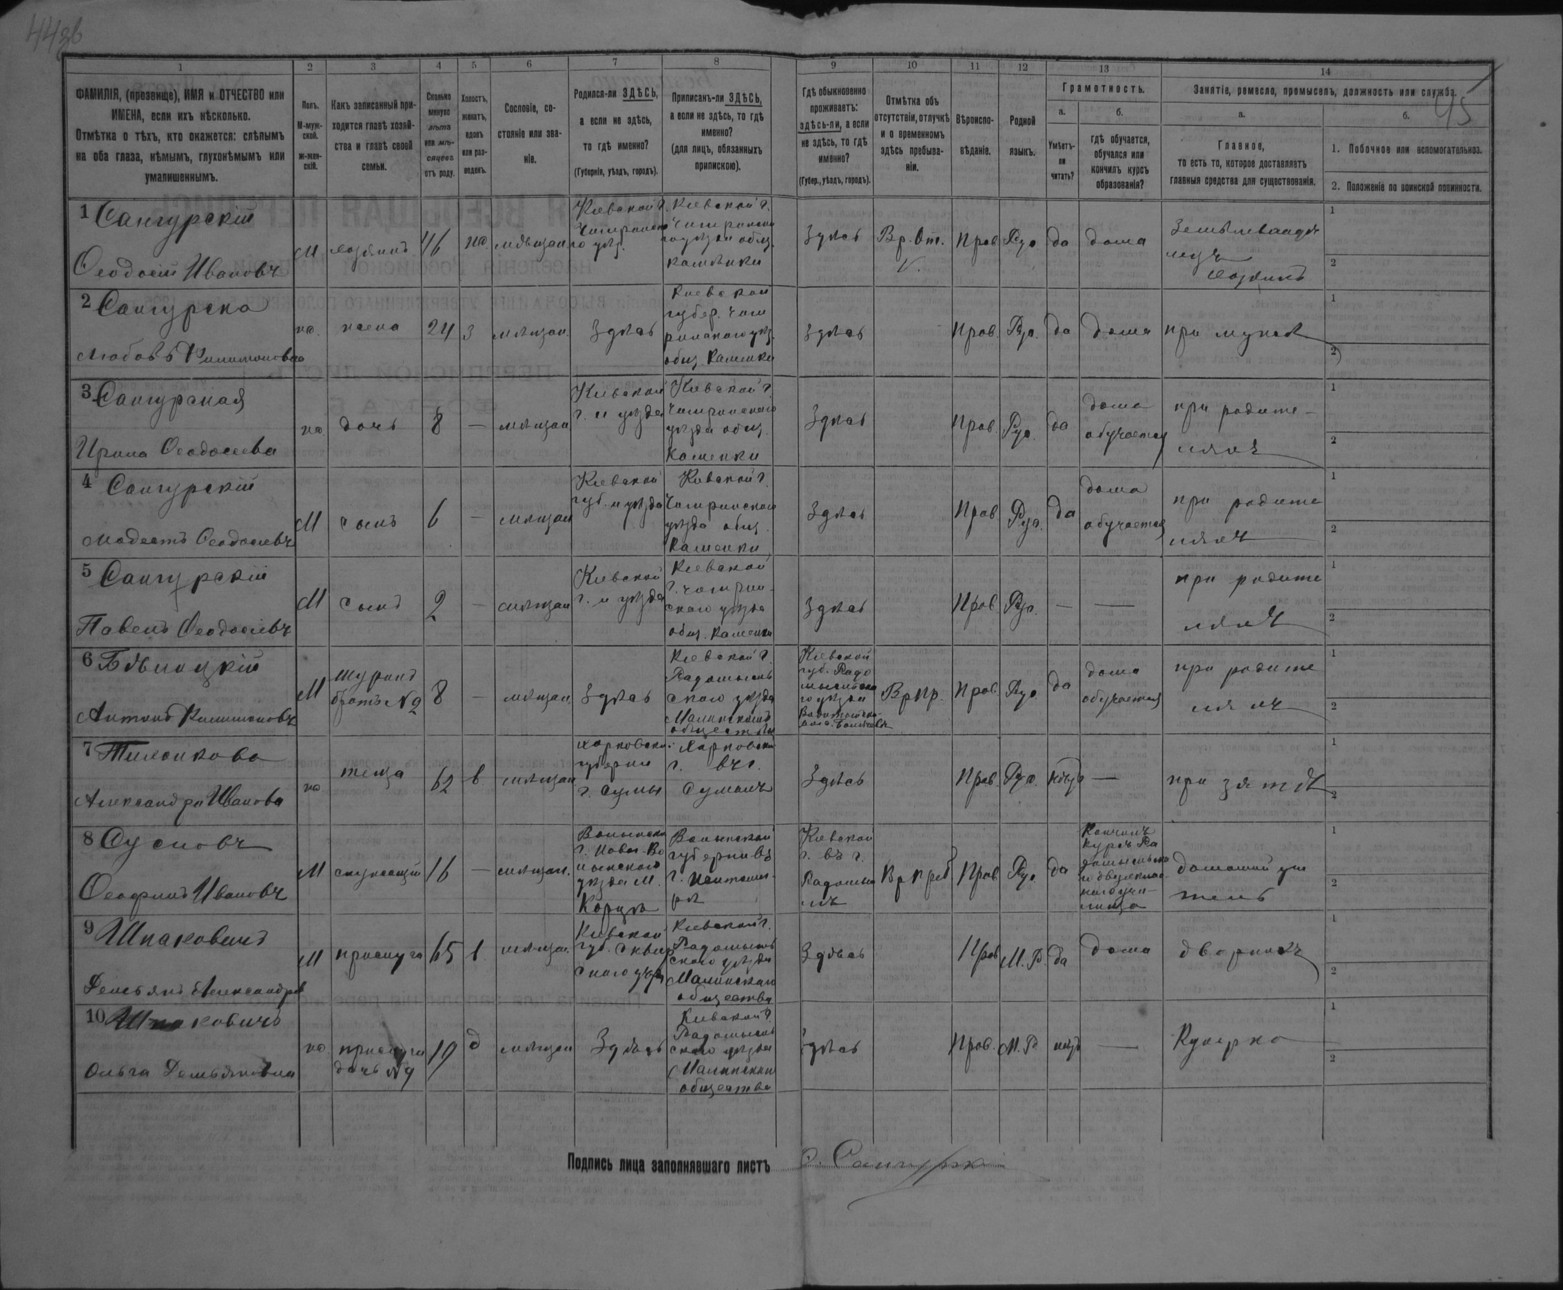 44 об
45
1 2 3 4 5 6 7 8 9 10 11 12 13 14
ФАМИЛІЯ, (прозвище), ИМЯ и ОТЧЕСТВО или
ИМЕНА, если ихъ нѣсколько.
Отмѣтка о тѣхъ, кто окажется: слѣпымъ
на оба глаза, нѣмымъ, глухонѣмымъ или
умалишеннымъ.
Полъ.
М-муж-
ской.
ж-жен-
скій.
Какъ записанный при-
ходится главѣ хозяй-
ства и главѣ своей
семьи.
Сколько
минуло
лѣтъ
или мѣ-
сяцевъ
отъ роду.
Холостъ,
женатъ,
вдовъ
или раз-
веденъ.
Сословіе, со-
стояніе или зва-
ніе.
Родился-ли ЗДѢСЬ,
а если не здѣсь,
то гдѣ именно?
(Губернія, уѣздъ, городъ).
Приписанъ-ли ЗДѢСЬ,
а если не здѣсь, то гдѣ
именно?
(для лицъ, обязанныхъ
припискою).
Гдѣ обыкновенно
проживаетъ:
здѣсь-ли, а если
не здѣсь, то гдѣ
именно?
(Губер., уѣздъ, городъ).
Отмѣтка объ
отсутствіи, отлучкѣ
и о временномъ
здѣсь пребыва-
ніи.
Вѣроиспо-
вѣданіе.
Родной
языкъ.
Грамотность.
а.
Умѣетъ-
ли
читать?
б.
гдѣ обучается,
обучался или
кончилъ курсъ
образованія?
Занятіе, ремесло, промыселъ, должность или служба.
а.
Главное,
то есть то, которое доставляетъ
главныя средства для существованія.
б.
1. Побочное или вспомогательное.
2. Положеніе по воинской повинности.
1 Сангурскій
Ѳеодосій Ивановъ
М хозяинъ 46 же мѣщан
Кіевской г.
Чигиринска
го уѣз.
Кіевской г.
Чигиринска
го уѣзда общ.
Каменки
Здѣсь Вр. От. Прав Рус да дома
хозяинъ
2 Сангурска
Любовь Филимоновна
же жена 24 з мѣщан Здѣсь
Кіевской
губер. Чиги
ринскаго уѣз.
общ. Каменки
Здѣсь Прав. Рус. да дома при мужѣ
3 Сангурская
Ирина Ѳеодосіева
же дочь 8 — мѣщан
Кіевской
г. и уѣзда
Кіевской г.
Чигиринскаго
уѣзда общ.
Каменки
Здѣсь Прав Рус. да
дома
обучается
при родите-
ляхъ
4 Сангурскій
Модестъ Ѳеодосіевъ
М сынъ 6 — мѣщан
Кіевской
губ. и уѣзда
Кіевской г.
Чигиринскаго
уѣзда общ.
Каменки
Здѣсь Прав Рус. да
дома
обучается
при родите
ляхъ
5 Сангурскій
Павелъ Ѳеодосіевъ
М сынъ 2 — мѣщан
Кіевской
г. и уѣзда
Кіевской
г. Чигирин-
скаго уѣзда
общ. Каменки
Здѣсь Прав. Рус. — —
при родите
ляхъ
6 Бѣлоцкій
Антонъ Филимоновъ
М
шуринъ
братъ №2
8 — мѣщан Здѣсь
Кіевской г.
Радомысль
скаго уѣзда
Малинскаго
общества
Кіевской
губ. Радо
мысльска
го уѣзда
Вр Пр. Прав. Рус да
дома
обучается
при родите
ляхъ
7
Александра Иванова
же теща 62 в мѣщан
Харковской
губерніи
г. Сумы
Харковской
г. въ г.
Сумахъ
Здѣсь Прав Рус. нѣтъ — при зятѣ
8 Сусловъ
Ѳеофилъ Ивановъ
М 16 — мѣщан.
Волынской
г. Новог. Во
лынскаго
уѣзда м.
Корцѣ
Волынской
губерніи въ
г. Житоми-
рѣ
Кіевской
г. въ г.
Радомыс
лѣ
Вр преб Прав Рус да
Кончилъ
курсъ Ра
домысльска
го двухклас
наго учи-
лища
домашній учи
тель
9 Шпаковичъ
Демьянъ Александров
М прислуга 65 в мѣщан
Кіевской
губ. Сквир
скаго уѣз
Кіевской г.
Радомысль
скаго уѣзда
Малинскаго
общества
Здѣсь Прав М.Р да дома дворникъ
10 Шпаковичъ
Ольга Демьяновна
же
прислуга
дочь №9
19 д мѣщан Здѣсь
Кіевской г.
Радомысль
скаго уѣзда
Малинскаго
общества
Здѣсь Прав. М.Р нѣтъ — Кухарка
Подпись лица заполнявшаго листъ Ѳ. Сангурск